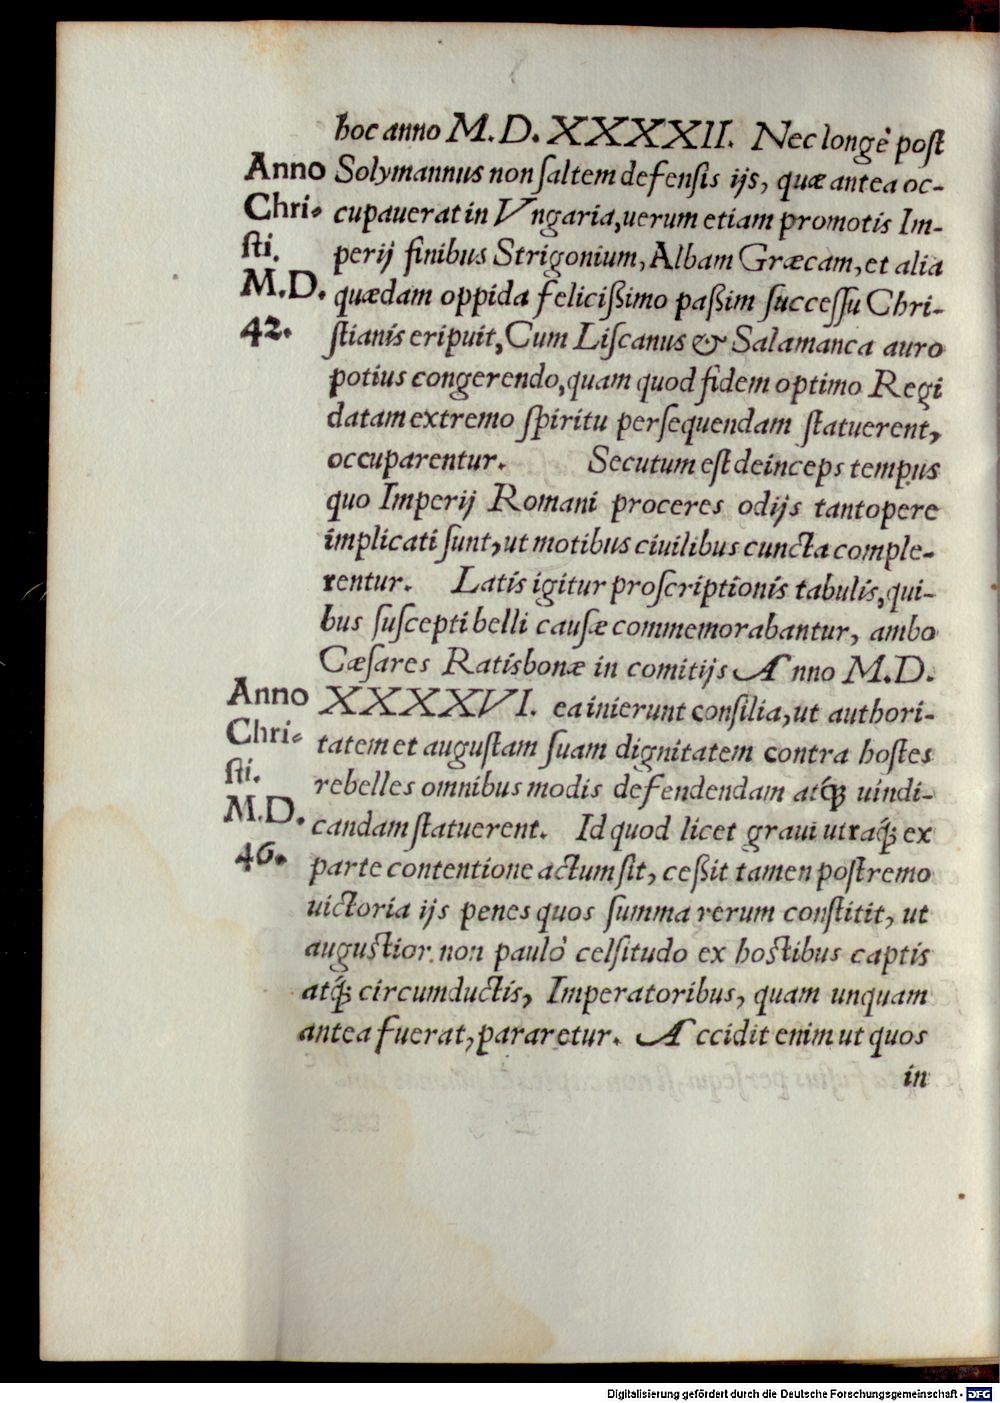 hoc anno M.D.XXXXII. Nec longè post
Anno
Chri-
sti.
M.D.
42.
Solymannus non ſaltem defenſis ijs, quæ antea oc-
cupauerat in Vngaria, uerum etiam promotis Im-
perij finibus Strigonium, Albam Græcam, et alia
quædam oppida feliciſſimo paſſim ſucceſſu Chri-
ſtianis eripuit, Cum Liſcanus & Salamanca auro
potius congerendo, quam quod fidem optimo Regi
datam extremo ſpiritu perſequendam ſtatuerent,
occuparentur. Secutum eſt deinceps tempus
quo Imperij Romani proceres odijs tantopere
implicati ſunt, ut motibus ciuilibus cuncta comple-
rentur. Latis igitur proſcriptionis tabulis, qui-
bus ſuſcepti belli cauſæ commemorabantur, ambo
Cæſares Ratisbonæ in comitijs Anno M.D.
Anno
Chri-
ſti.
M.D.
46.
XXXXVI. ea inierunt conſilia, ut authori-
tatem et auguſtam ſuam dignitatem contra hoſtes
rebelles omnibus modis defendendam atq́; uindi-
candam ſtatuerent. Id quod licet graui utraq́; ex
parte contentione actum ſit, ceſſit tamen poſtremo
uictoria ijs penes quos ſumma rerum conſtitit, ut
auguſtior non paulò celſitudo ex hoſtibus captis
atq́; circumductis, Imperatoribus, quam unquam
antea fuerat, pararetur. Accidit enim ut quos
in
Digitalisierung gefördert durch die Deutsche Forschungsgemeinschaft - DFG